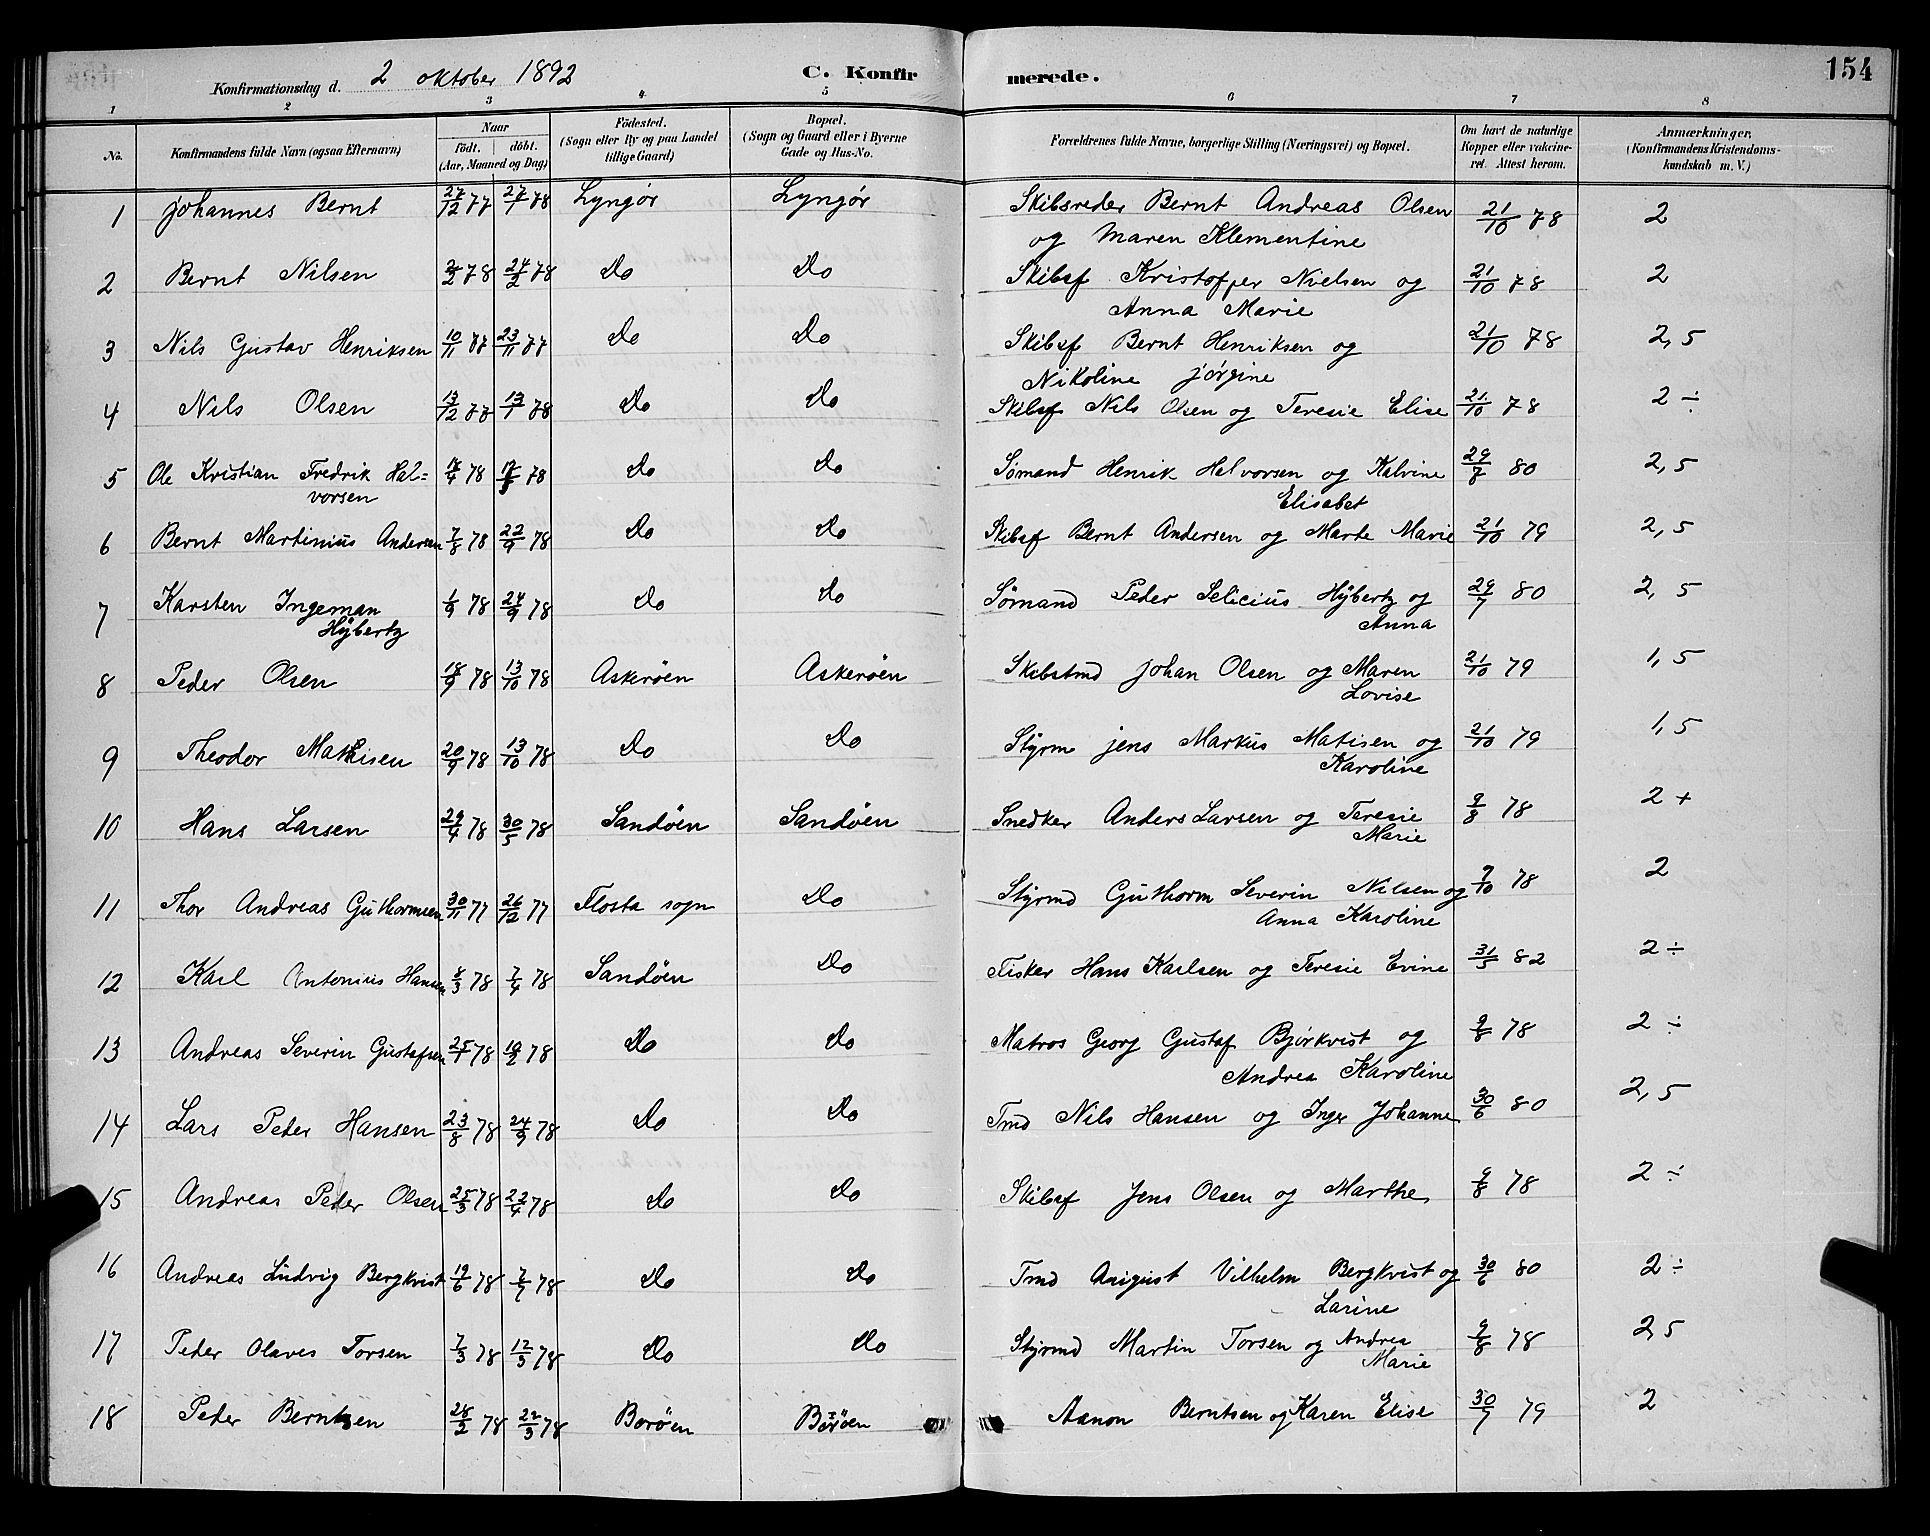 154
Konfirmationsdag d. 2 oktober 1892 C. Konfirmerede.
1 2 3 4 5 6 7 8
No. Konfirmandens fulde Navn (ogsaa Efternavn) Naar födt. döbt. (Aar, Maaned og Dag) Födested. (Sogn eller By og paa Landet tillige Gaard) Bopæl. (Sogn og Gaard eller i Byerne Gade og Hus-No. Forældrenes fulde Navne, borgerlige Stilling (Næringsvei) og Bopæl. Om havt de naturlige Kopper eller vakcineret. Attest herom. Anmærkninger, (Konfirmandens Kristendomskundskab m. V.)
1 Johannes Bernt 27/12 77 27/1 78 Lyngör Lyngör Skibsreder Bernt Andreas Olsen 21/10 78 2
og Maren Klementine
2 Bernt Nilsen 2/2 78 24/2 78 Do Do Skibsf Kristoffer Nielsen og 21/10 78 2
Anna Marie
3 Nils Gustav Henriksen 10/11 77 23/11 77 Do Do Skibsf Bernt Henriksen og 21/10 78 2,5
Nikoline Jörgine
4 Nils Olsen 13/12 77 13/1 78 Do Do Skibsf Nils Olsen og Teresie Elise 21/10 78 2 ÷
5 Ole Kristian Fredrik Hal= 78 78 Do Do Sömand Henrik Halvorsen og Kalvine 80 2,5
vorsen Elisabet
6 Bernt Martinius Andersen 7/8 78 22/9 78 Do Do Skibsf Bernt Andersen og Marte Marie 21/10 79 2,5
7 Karsten Ingeman 1/9 78 24/9 78 Do Do Sömand Peder Selicius Hÿbertz og 29/7 80 2,5
Hÿbertz Anna
8 Peder Olsen 18/9 78 13/10 78 Askeröen Askeröen Skibstmd Johan Olsen og Maren 21/10 79 1,5
Lovise
9 Theodor Mathisen 20/9 78 13/10 78 Do Do Styrm Jens Markus Matisen og 21/10 79 1,5
Karoline
10 Hans Larsen 29/4 78 30/5 78 Sandöen Sandöen Snedker Anders Larsen og Teresie 9/8 78 2 +
Marie
11 Thor Andreas Guthormsen 30/11 77 26/12 77 Flosta sogn Do Styrmd Guthorm Severin Nilsen og 78 2
Anna Karoline
12 Karl Antonius Hansen 8/3 78 7/4 78 Sandöen Do Fisker Hans Karlsen og Teresie Evine 31/5 82 2 ÷
13 Andreas Severin Gustafsen 25/1 78 19/2 78 Do Do Matros Georg Gustaf Björkvist og 9/8 78 2 ÷
Andrea Karoline
14 Lars Peder Hansen 23/8 78 24/9 78 Do Do Tmd Nils Hansen og Inger Johanne 30/6 80 2,5
15 Andreas Peder Olsen 25/3 78 22/4 78 Do Do Skibsf Jens Olsen og Marthe 9/8 78 2 ÷
16 Andreas Ludvig Bergkvist 19/6 78 7/7 78 Do Do Tmd August Vilhelm Bergkvist og 30/6 80 2 ÷
Larine
17 Peder Olaves Torsen 7/3 78 12/3 78 Do Do Styrmd Martin Torsen og Andrea 9/8 78 2,5
Marie
18 Peder Berntsen 28/2 78 22/3 78 Boröen Boröen Aanon Berntsen og Karen Elise 30/7 79 2